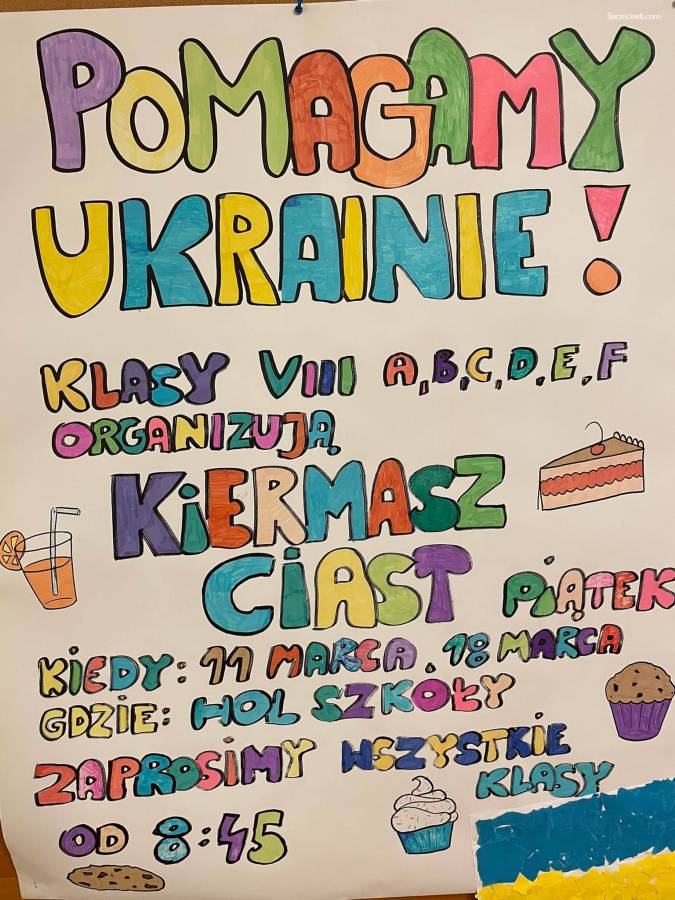 Szczecinek.com
POMAGAMY
UKRAINIE!
KLASY VIII A,B,C,D,E,F
ORGANIZUJĄ
KiERMASZ
CiAST PiĄTEK
KiEDY: 11 MARCA, 18 MARCA
GDZiE: HOL SZKOŁY
ZAPROSiMY WSZYSTKiE
KLASY
OD 8:45